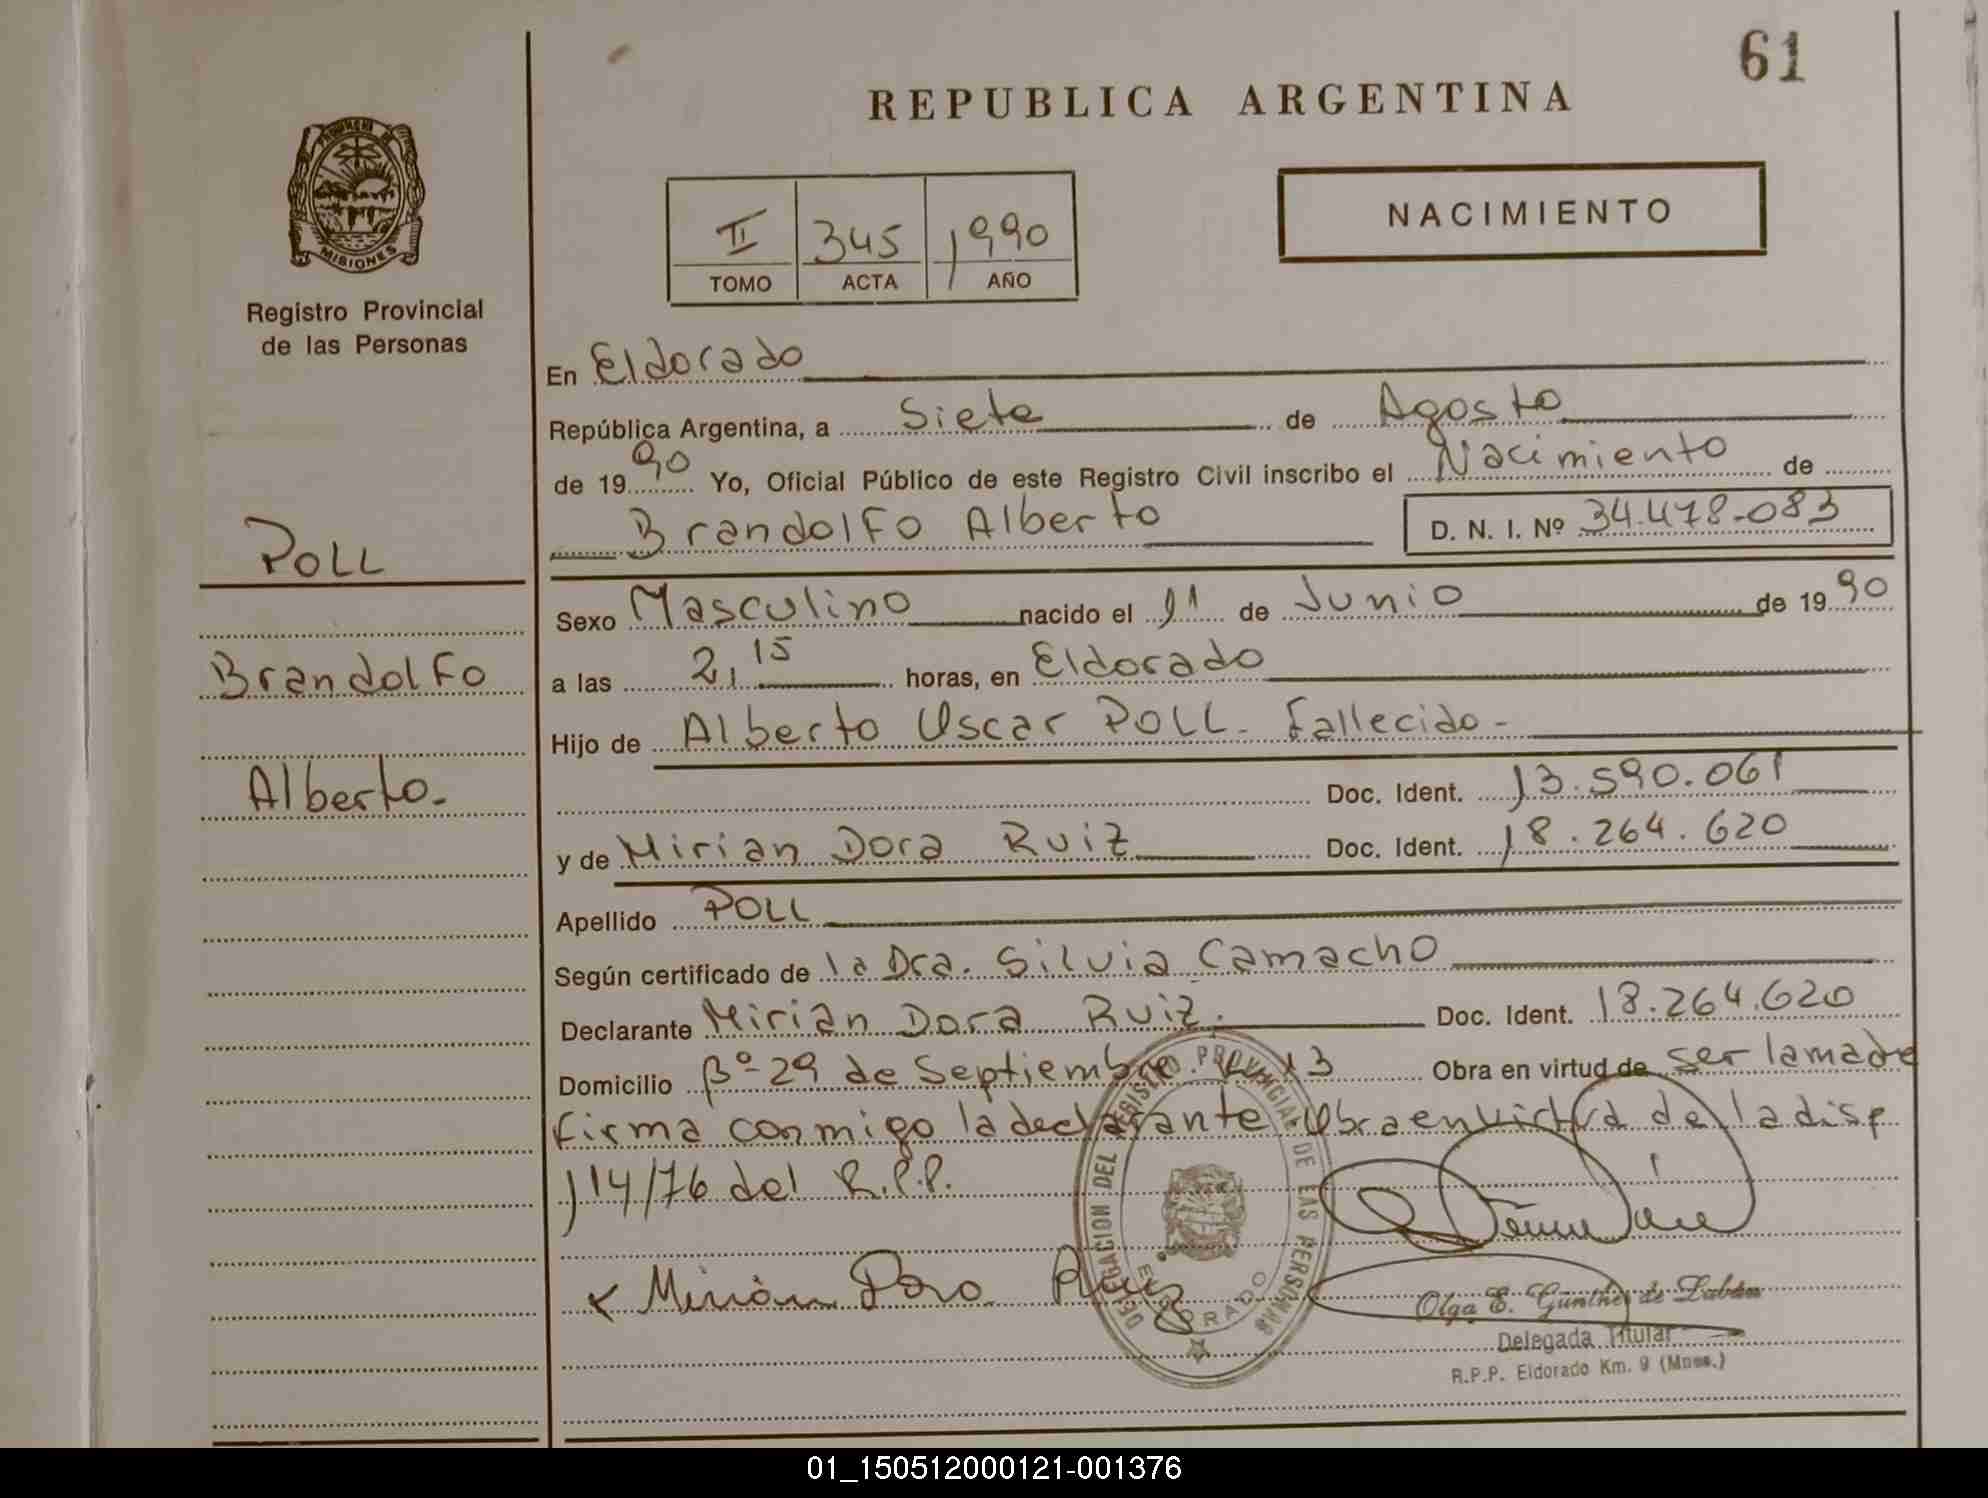 61
REPUBLICA ARGENTINA
PROVINCIA DE
MISIONES
Registro Provincial
de las Personas
II 345 1990
TOMO ACTA AÑO
NACIMIENTO
En Eldorado
República Argentina, a Siete de Agosto
de 1990 Yo, Oficial Público de este Registro Civil inscribo el Nacimiento de
Brandolfo Alberto D. N. I. Nº 34.478.083
POLL
Brandolfo
Alberto.
Sexo Masculino nacido el 11 de Junio de 1990
a las 2,15 horas, en Eldorado
Hijo de Alberto Oscar POLL. Fallecido-
Doc. Ident. 13.590.061
y de Mirian Dora Ruiz Doc. Ident. 18.264.620
Apellido POLL
Según certificado de la Dra. Silvia Camacho
Declarante Mirian Dora Ruiz. Doc. Ident. 18.264.620
Domicilio Bº 29 de Septiembre. 13 Obra en virtud de ser la madre
firma conmigo la declarante. Obra en virtud de la disp
114/76 del R.P.P.
DELEGACION DEL REGISTRO PROVINCIAL DE LAS PERSONAS
ELDORADO
Mirian Dora Ruiz
Olga E. Günther de Labán
Delegada Titular
R.P.P. Eldorado Km. 9 (Mnes.)
01_150512000121-001376